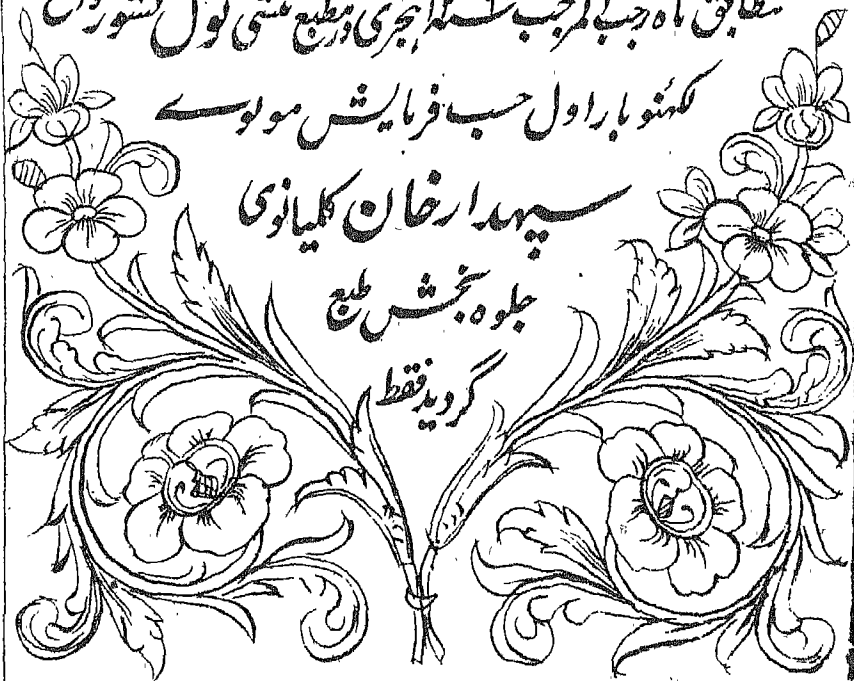 مطابق ماہ رجب المرجب ہجری در مطبع منشی نول کشور واقع
لکھنؤ بار اول حسب فرمایش مولوے
سپہدار خان کلیانوی
جلوہ بخش طبع
گردید فقط